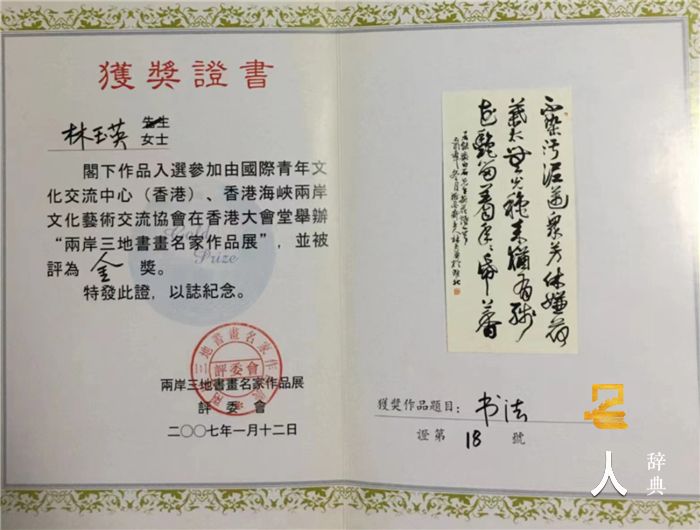 獲獎證書
林玉英 先生
女士
閣下作品入選參加由國際青年文
化交流中心（香港）、香港海峽兩岸
文化藝術交流協會在香港大會堂舉辦
“兩岸三地書畫名家作品展”，並被
評為 金 獎。
特發此證，以誌紀念。
Gold
Prize
評委會
兩岸三地書畫名家作品展
評委會
二〇〇七年一月十二日
不染污泥邁衆芳休嫌荷
葉太無光秋來猶有殘
花艷留着年年
獲獎作品題目：书法
證第 18 號
名人
辞典